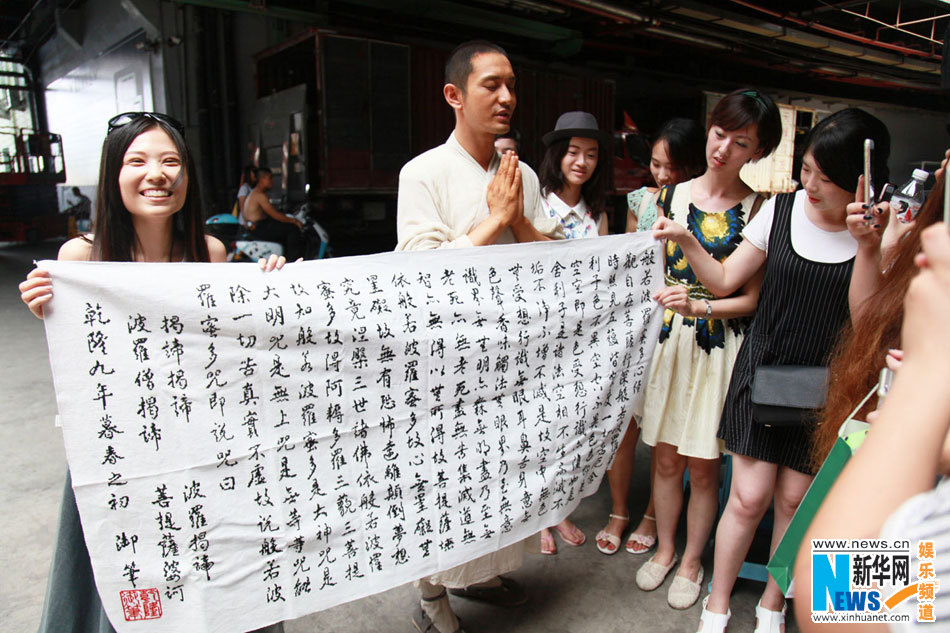 www.news.cn
新华网
www.xinhuanet.com
般若波羅蜜多心經
觀自在菩薩行深般若
時照見五蘊皆空
利子色不異空空不異色色
空空即是色受想行識亦
舍利子是諸法空相不生不滅不
垢不淨不增不減是故空中無色
無受想行識無眼耳鼻舌身意無
色聲香味觸法無眼界乃至無意
識界無無明亦無無明盡乃至無
老死亦無老死盡無苦集滅道無
智亦無得以無所得故菩提薩埵
依般若波羅蜜多故心無罣礙無
罣礙故無有恐怖遠離顛倒夢想
究竟涅槃三世諸佛依般若波羅
蜜多故得阿耨多羅三藐三菩提
故知般若波羅蜜多是大神咒是
大明咒是無上咒是無等等咒能
除一切苦真實不虛故說般若波
羅蜜多咒即說咒曰
揭諦揭諦 波羅揭諦
波羅僧揭諦 菩提薩婆訶
乾隆九年暮春之初 御筆
www.news.cn
新华网
NEWS
www.xinhuanet.com
娱乐频道